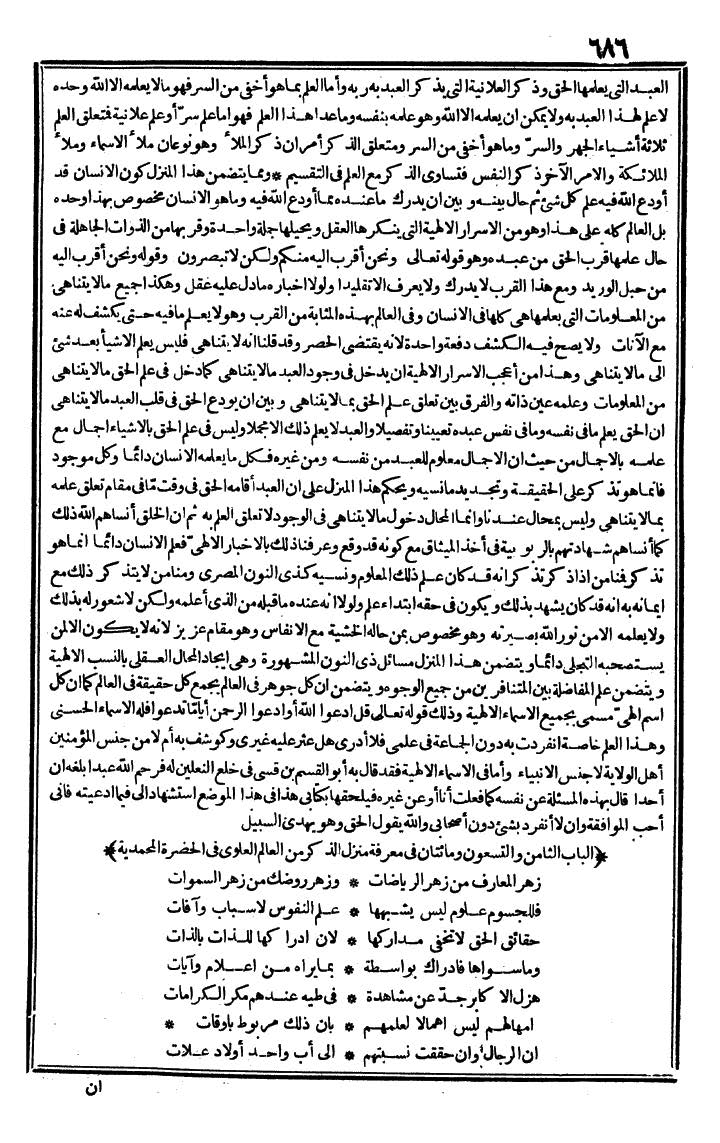 ٦٨٦
العبد التي يعلمها الحق وذكر العلانية التي يذكر العبد بها ربه وأما العلم بما هو أخفى من السر فهو ما لا يعلمه الا الله وحده
لا علم لهذا العبد به ولا يمكن ان يعلمه الا الله وهو علمه بنفسه وما عدا هذا العلم فهو اما علم سر أو علم علانية فتعلق العلم
ثلاثة أشياء الجهر والسر وما هو أخفى من السر ومتعلق الذكر أمران ذكر الملأ وهو نوعان ملأ الاسماء وملأ
الملائكة والامر الآخر ذكر النفس فتساوى الذكر مع العلم في التقسيم * ومما يتضمن هذا المنزل كون الانسان قد
أودع الله فيه علم كل شئ ثم حال بينه وبين ان يدرك ما عنده مما أودع الله فيه وما هو الانسان مخصوص بهذا وحده
بل العالم كله على هذا وهو من الاسرار الالهية التي ينكرها العقل ويحيلها جملة واحدة وقربها من الذوات الجاهلة في
حال علمها قرب الحق من عبده وهو قوله تعالى ونحن أقرب اليه منكم ولكن لا تبصرون وقوله ونحن أقرب اليه
من حبل الوريد ومع هذا القرب لا يدرك ولا يعرف الا تقليدا ولولا اخباره ما دل عليه عقل وهكذا جميع ما لا يتناهى
من المعلومات التي يعلمها هي كلها في الانسان وفي العالم بهذه المثابة من القرب وهو لا يعلم ما فيه حتى يكشف له عنه
مع الآنات ولا يصح فيه الكشف دفعة واحدة لانه يقتضى الحصر وقد قلنا انه لا يتناهى فليس يعلم الا شيأ بعد شئ
الى ما لا يتناهى وهذا من أعجب الاسرار الالهية ان يدخل في وجود العبد ما لا يتناهى كما دخل في علم الحق ما لا يتناهى
من المعلومات وعلمه عين ذاته والفرق بين تعلق علم الحق بما لا يتناهى وبين ان يودع الحق في قلب العبد ما لا يتناهى
ان الحق يعلم ما في نفسه وما في نفس عبده تعيينا وتفصيلا والعبد لا يعلم ذلك الا مجملا وليس في علم الحق بالاشياء اجمال مع
علمه بالاجمال من حيث ان الاجمال معلوم للعبد من نفسه ومن غيره فكل ما يعلمه الانسان دائما وكل موجود
فانما هو تذكر على الحقيقة وتجديد ما نسيه ويحكم هذا المنزل على ان العبد أقامه الحق في وقت ما في مقام تعلق علمه
بما لا يتناهى وليس بمحال عندنا وانما المحال دخول ما لا يتناهى في الوجود لا تعلق العلم به ثم ان الخلق أنساهم الله ذلك
كما أنساهم شهادتهم بالربوبية في أخذ الميثاق مع كونه قد وقع وعرفنا ذلك بالاخبار الالهي فعلم الانسان دائما انما هو
تذكر فمنا من اذا ذكر تذكر انه قد كان علم ذلك المعلوم ونسيه كذى النون المصرى ومنا من لا يتذكر ذلك مع
ايمانه به انه قد كان يشهد بذلك ويكون في حقه ابتداء علم ولولا انه عنده ما قبله من الذى أعلمه ولكن لا شعور له بذلك
ولا يعلمه الا من نور الله بصيرته وهو مخصوص بمن حاله الخشية مع الانفاس وهو مقام عزيز لانه لا يكون الا لمن
يستصحبه التجلي دائما ويتضمن هذا المنزل مسائل ذى النون المشهورة وهى ايجاد المحال العقلى بالنسب الالهية
ويتضمن علم المفاضلة بين المتنافرين من جميع الوجوه ويتضمن ان كل جوهر في العالم يجمع كل حقيقة في العالم كما ان كل
اسم الهي مسمى بجميع الاسماء الالهية وذلك قوله تعالى قل ادعوا الله أو ادعوا الرحمن أياما تدعوا فله الاسماء الحسنى
وهذا العلم خاصة انفردت به دون الجماعة في علمى فلا أدرى هل عثر عليه غيرى وكوشف به أم لا من جنس المؤمنين
أهل الولاية لا جنس الانبياء وأما في الاسماء الالهية فقد قال به أبو القاسم بن قسى في خلع النعلين له فرحم الله عبدا بلغه ان
أحدا قال بهذه المسئلة عن نفسه كما فعلت أنا أو عن غيره فيلحقها بكتابى هذا في هذا الموضع استشهادا لى فيما ادعيته فانى
أحب الموافقة وان لا أنفرد بشئ دون أصحابى والله يقول الحق وهو يهدى السبيل
﴿الباب الثامن والتسعون ومائتان في معرفة منزل الذكر من العالم العلوى في الحضرة المحمدية﴾
زهر المعارف من زهر الرياضات * وزهر روضك من زهر السموات
فللجسوم علوم ليس يشبهها * علم النفوس لاسباب وآفات
حقائق الحق لا تخفى مداركها * لان ادراكها للذات بالذات
وما سواها فادراك بواسطة * بما يراه من اعلام وآيات
هزل الاكابر جد عن مشاهدة * في طيه عندهم مكر الكرامات
امهالهم ليس اهمالا لعلمهم * بان ذلك مربوط باوقات *
ان الرجال وان حققت نسبتهم * الى أب واحد أولاد علات
ان